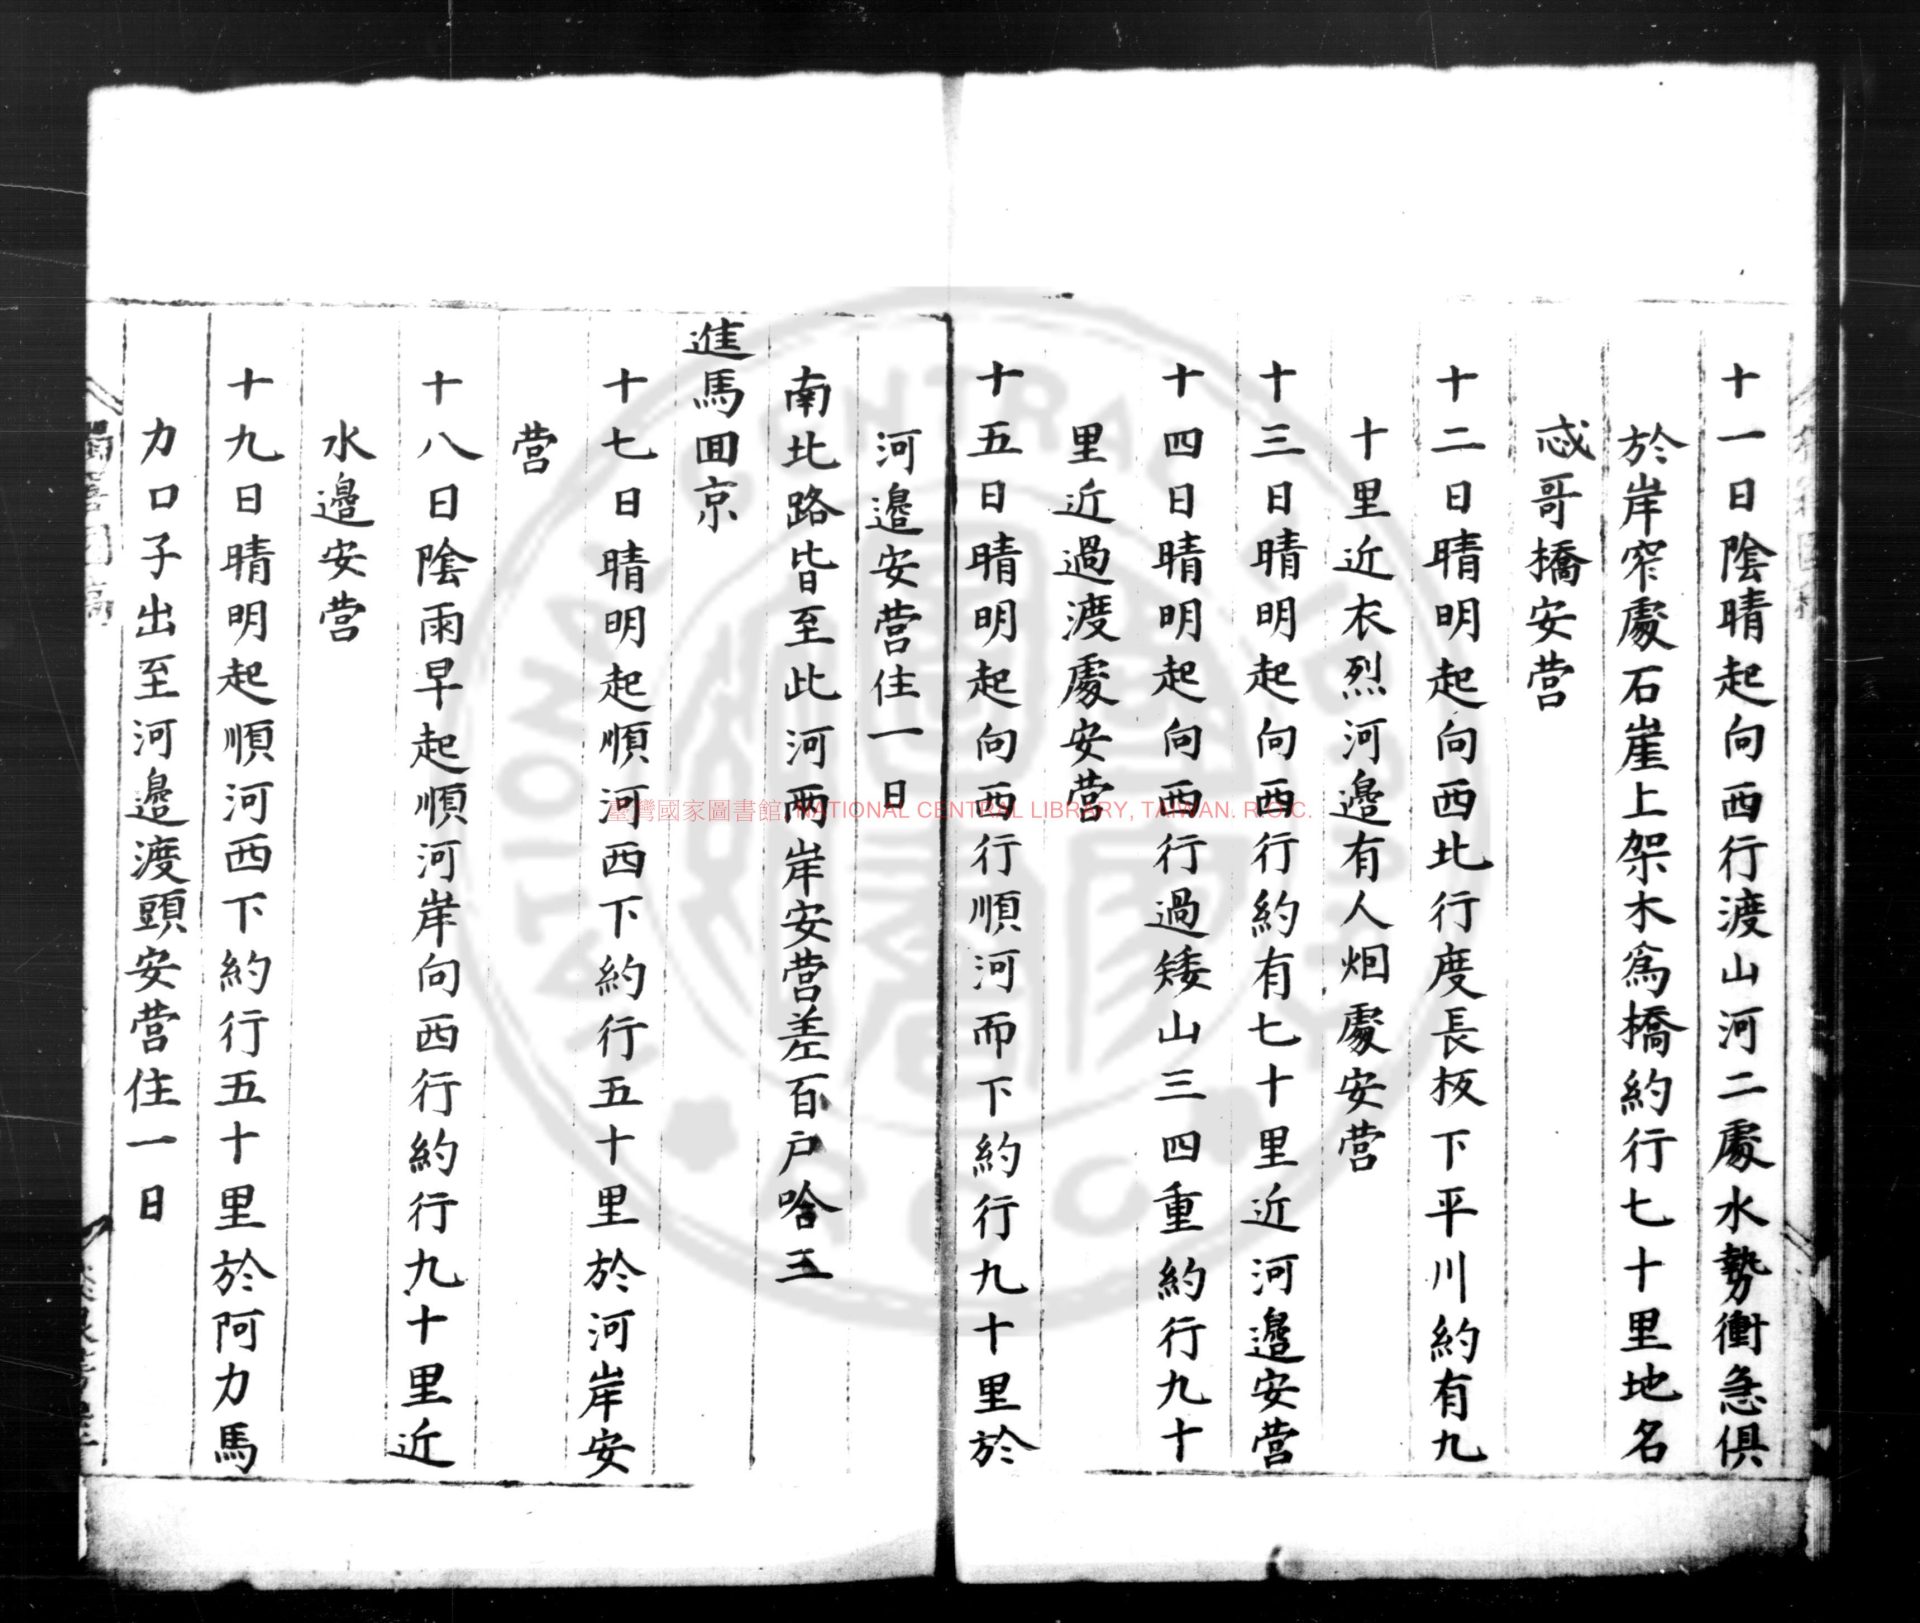 十一日陰晴起向西行渡山河二處水勢衝急俱
於岸窄處石崖上架木為橋約行七十里地名
忒哥橋安营
十二日晴明起向西北行度長坂下平川約有九
十里近衣烈河邉有人烟處安营
十三日晴明起向西行約有七十里近河邉安营
十四日晴明起向西行過矮山三四重約行九十
里近過渡處安营
十五日晴明起向西行順河而下約行九十里於
河邉安营住一日
南北路皆至此河兩岸安营差百户哈三
進馬囬京
十七日晴明起順河西下約行五十里於河岸安
营
十八日陰雨早起順河岸向西行約行九十里近
水邉安营
十九日晴明起順河西下約行五十里於阿力馬
力口子出至河邉渡頭安营住一日
臺灣國家圖書館, NATIONAL CENTRAL LIBRARY, TAIWAN. R.O.C.